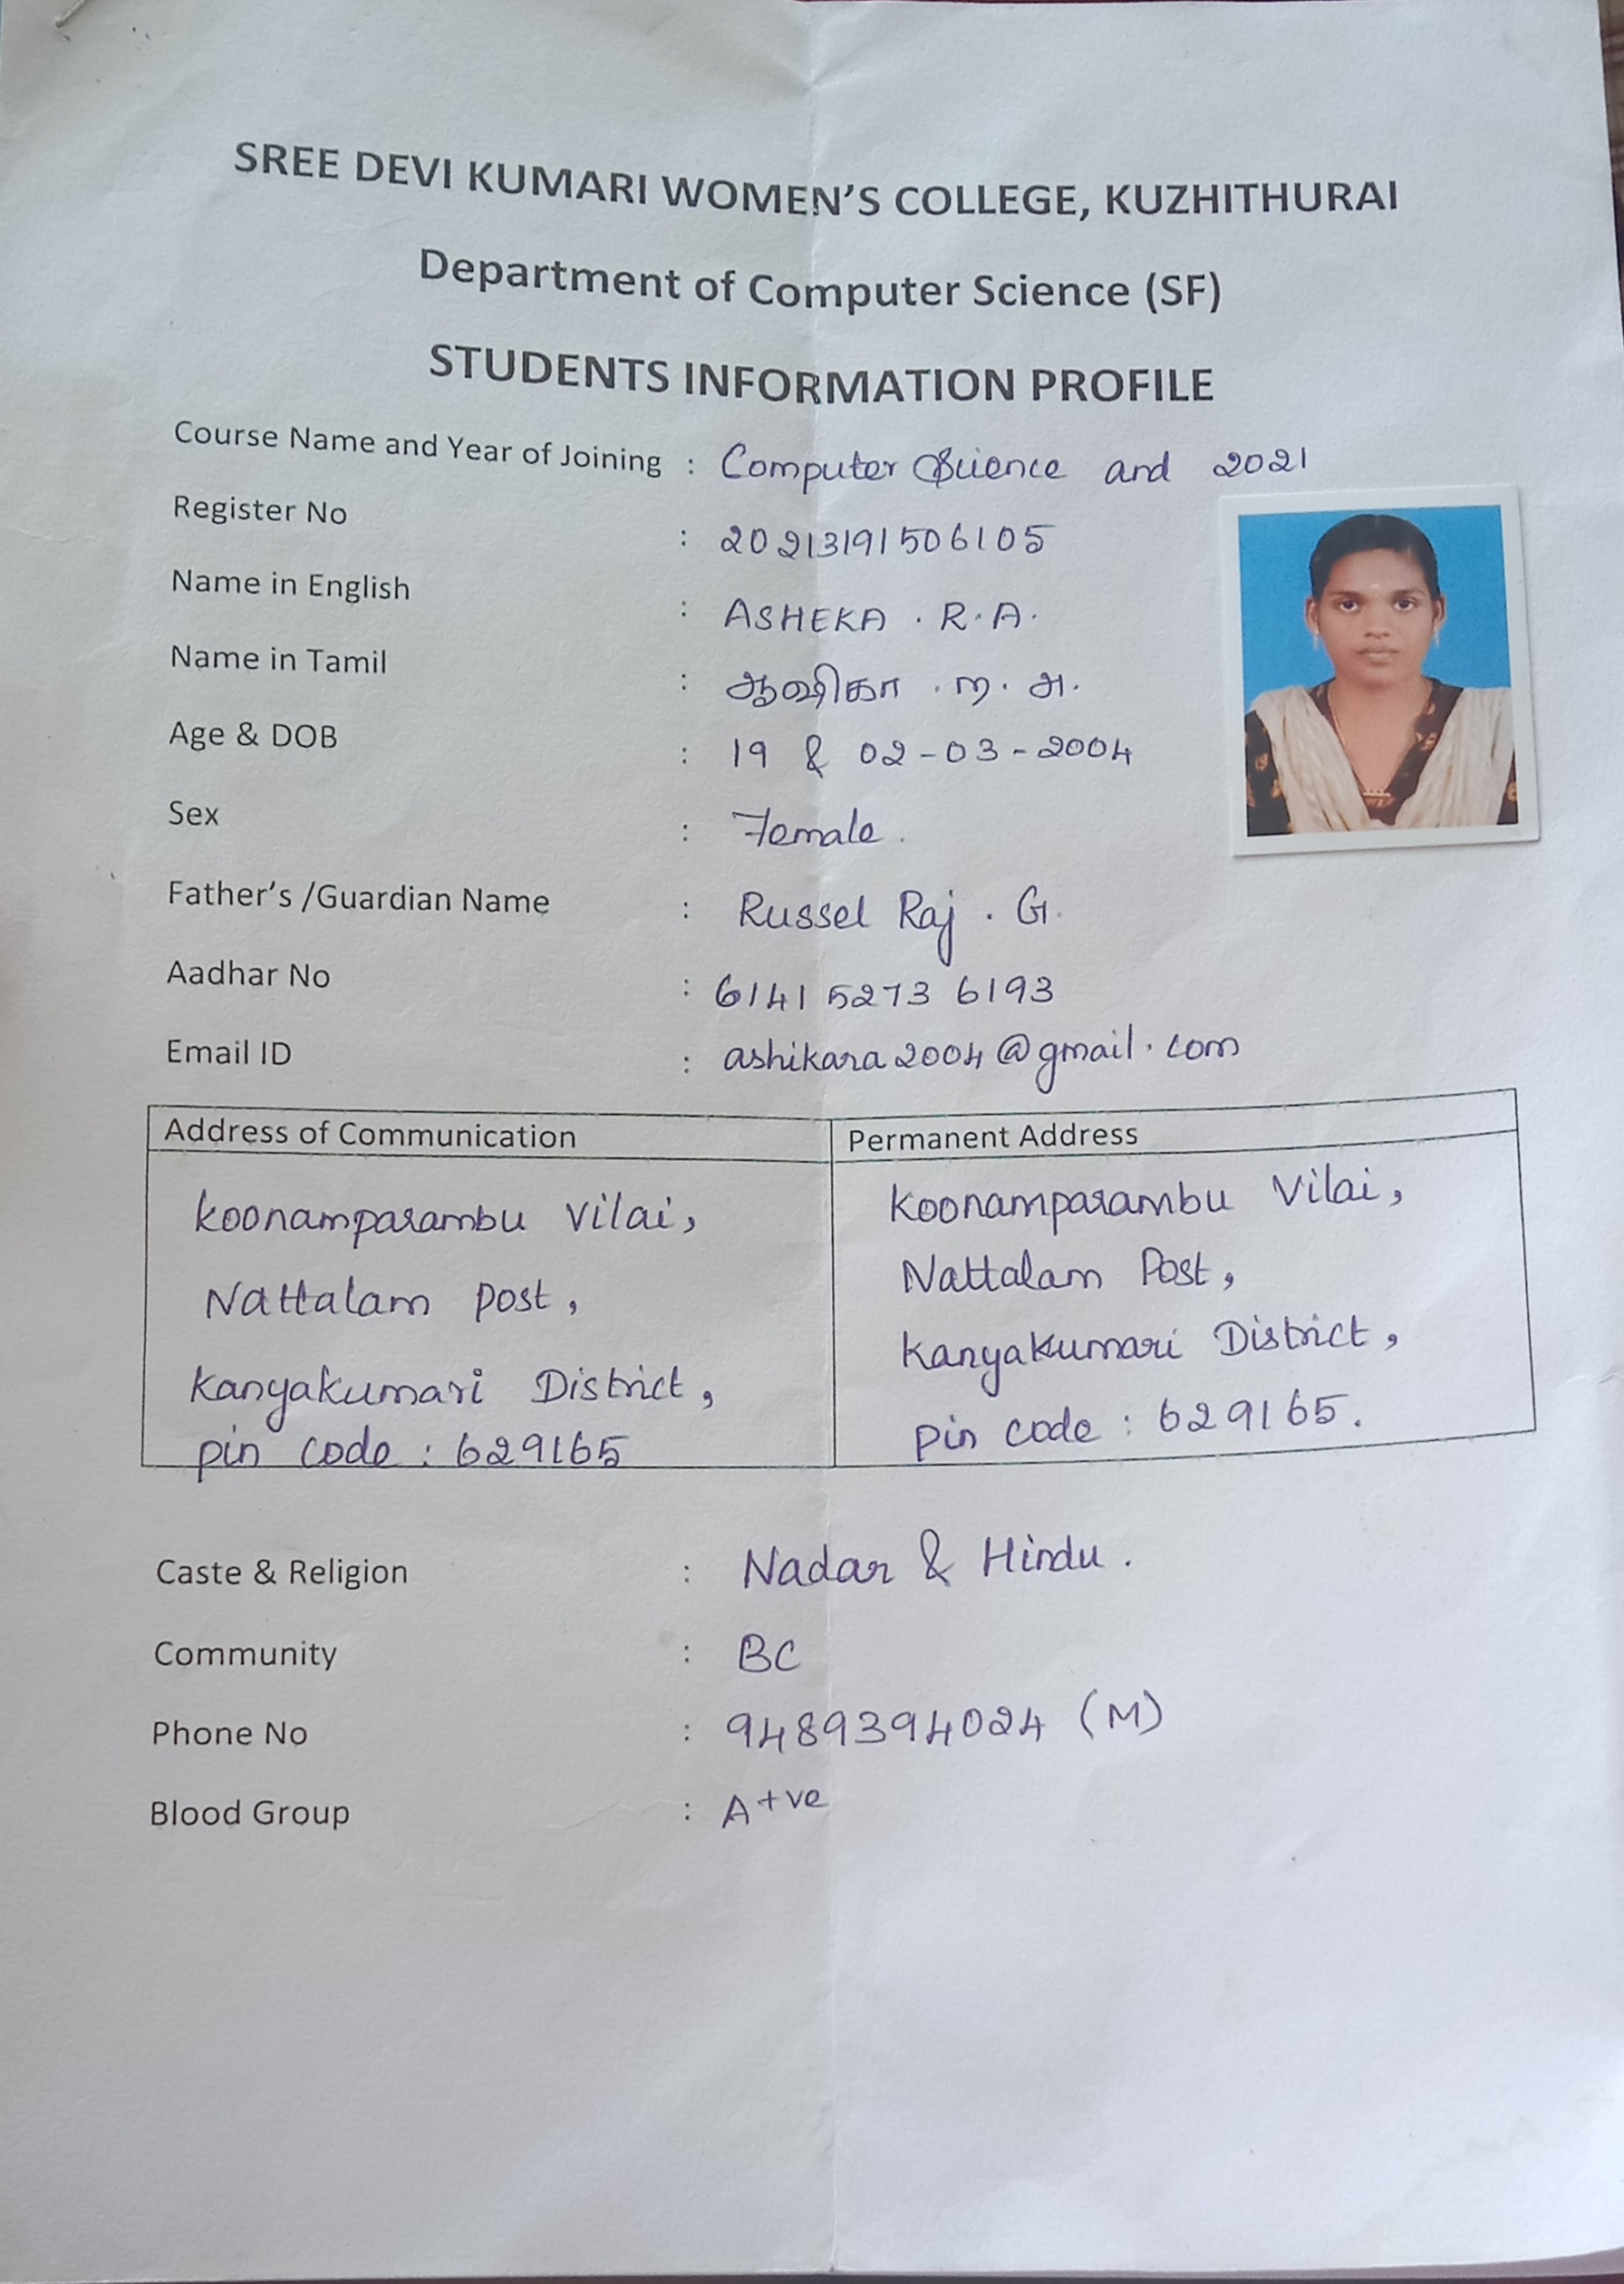 SREE DEVI KUMARI WOMEN'S COLLEGE, KUZHITHURAI
Department of Computer Science (SF)
STUDENTS INFORMATION PROFILE
Course Name and Year of Joining : Computer Science and 2021
Register No : 20213191506105
Name in English : ASHEKA . R.A.
Name in Tamil : ஆஷிகா . ற. அ.
Age & DOB : 19 & 02-03-2004
Sex : Female.
Father's /Guardian Name : Russel Raj . G.
Aadhar No : 6141 5273 6193
Email ID : ashikara2004@gmail.com
Address of Communication
Koonamparambu Vilai,
Nattalam post,
Kanyakumari District,
pin code : 629165
Permanent Address
Koonamparambu Vilai,
Nattalam Post,
Kanyakumari District,
pin code : 629165.
Caste & Religion : Nadar & Hindu.
Community : BC
Phone No : 9489394024 (M)
Blood Group : A+ve